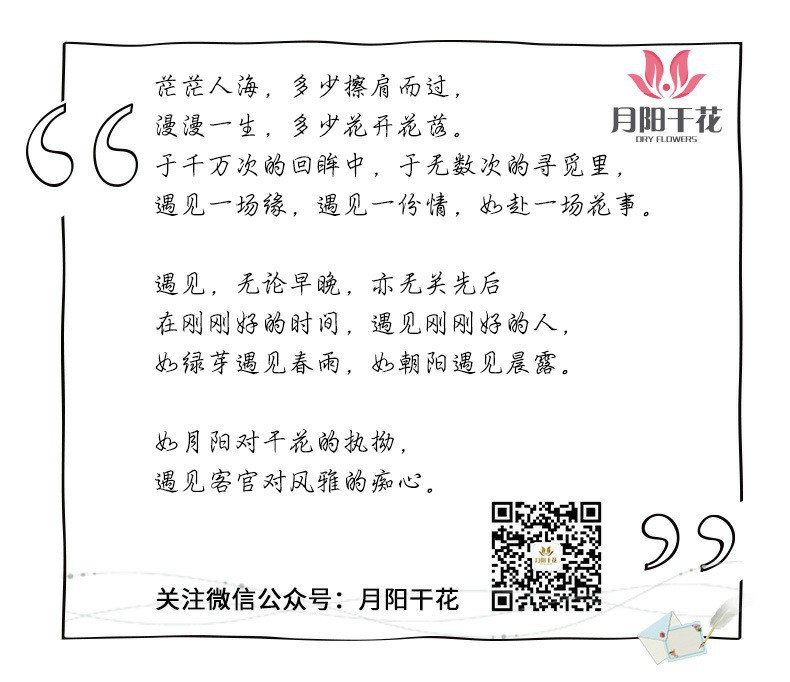 月阳干花
DRY FLOWERS
茫茫人海，多少擦肩而过，
漫漫一生，多少花开花落。
于千万次的回眸中，于无数次的寻觅里，
遇见一场缘，遇见一份情，如赴一场花事。
遇见，无论早晚，亦无关先后
在刚刚好的时间，遇见刚刚好的人，
如绿芽遇见春雨，如朝阳遇见晨露。
如月阳对干花的执拗，
遇见客官对风雅的痴心。
月阳干花
关注微信公众号：月阳干花